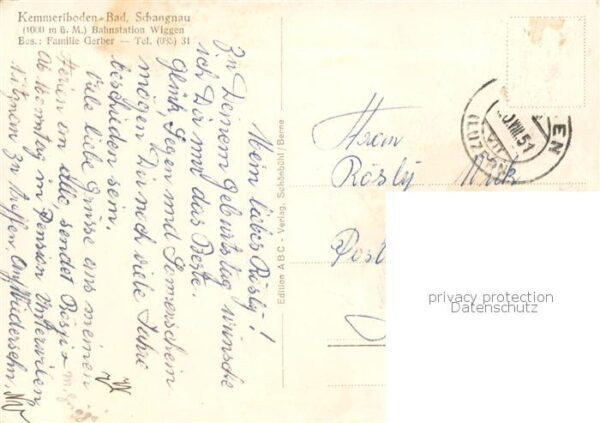 Kemmeriboden-Bad, Schangnau
(1000 m ü. M.) Bahnstation Wiggen
Bes.: Familie Gerber — Tel. (035) 31
Mein liebes Rösly!
Zu Deinem Geburtstag wünsche
ich Dir nur das Beste.
Glück, Segen und Sonnenschein
mögen Dir noch viele Jahre
beschieden sein.
Viele liebe Grüsse aus meinen
Ferien an alle, sendet Rösi
Ab Montag in Pension Unterwilen
Vitznau zu treffen. Auf Wiedersehn.
Edition A B C - Verlag, Schönbühl / Berne
Frau
Rösly
Post
VIII.51
EN
(LUZ
privacy protection
Datenschutz